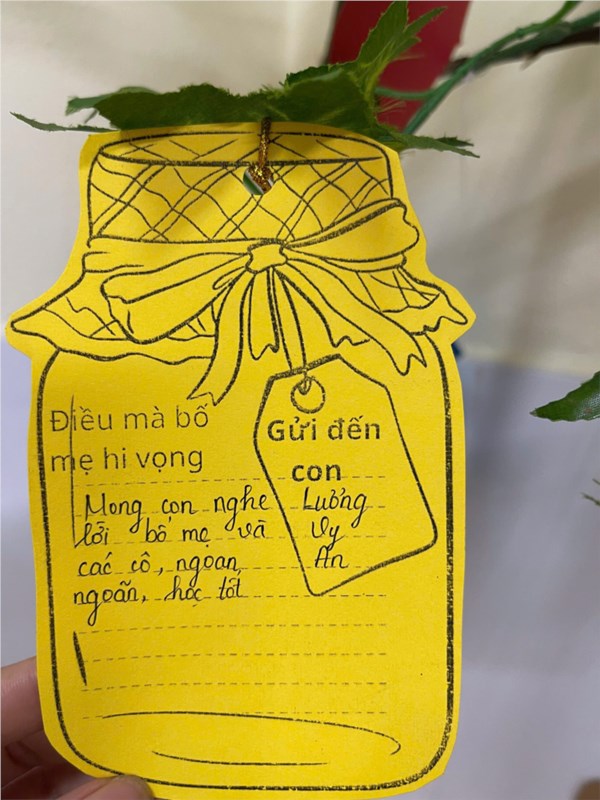 Điều mà bố
mẹ hi vọng
Mong con nghe
lời bố mẹ và
các cô, ngoan
ngoãn, học tốt
Gửi đến
con
Lương
Vy
An